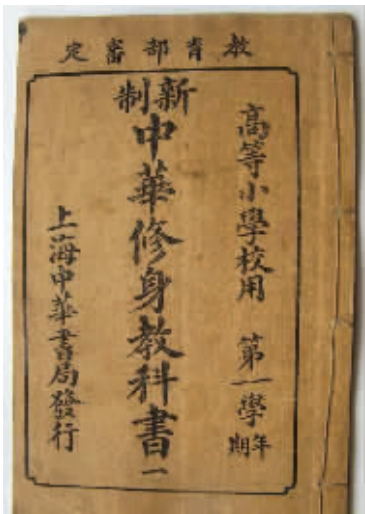 教育部審定
高等小學校用 第一學年期
新制
中華修身教科書一
上海中華書局發行